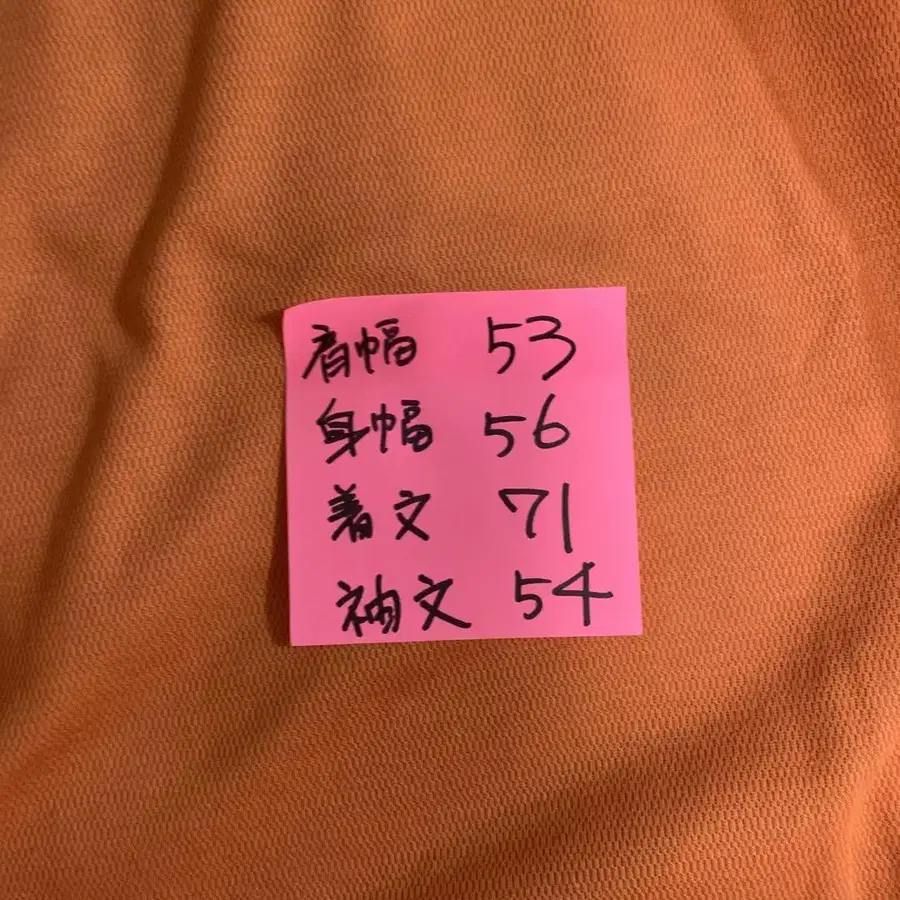 肩幅 53
身幅 56
着丈 71
袖丈 54